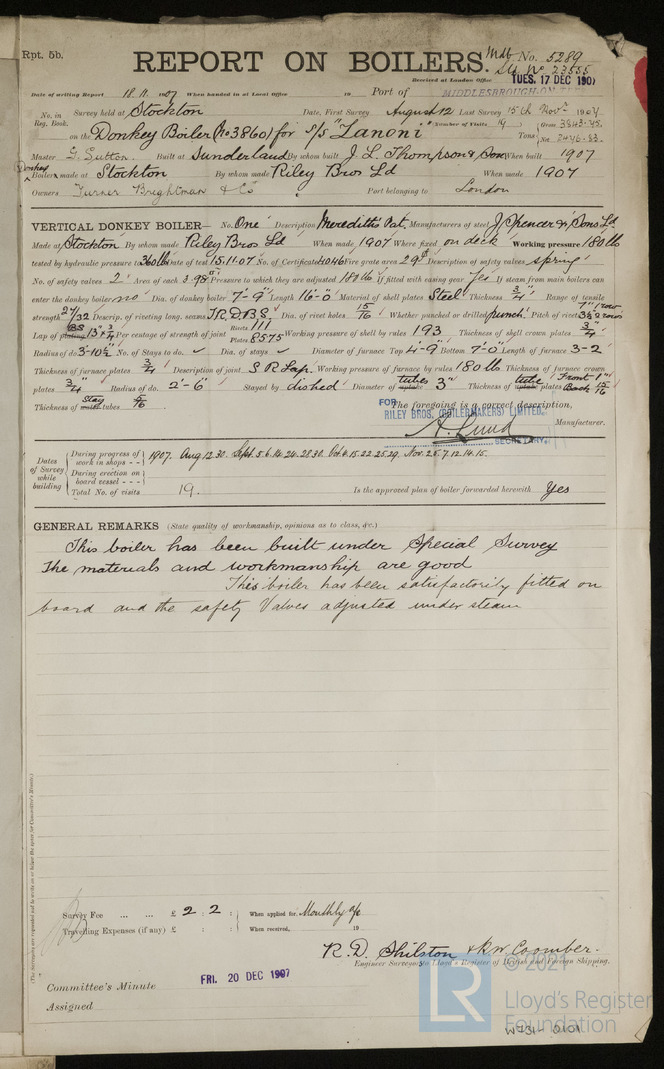 Rpt. 5b.
REPORT ON BOILERS.
Mdb No. 5289
Sld No 23555
Received at London Office TUES. 17 DEC 1907
Date of writing Report 18.11.1907 When handed in at Local Office 19 Port of MIDDLESBROUGH-ON-TEES
No. in Reg. Book. Survey held at Stockton Date, First Survey August 12 Last Survey 15th Novr 1907
(Number of Visits 19
on the Donkey Boiler (No 3860) for S/S "Zanoni" Tons { Gross 3843.45 Net 2446.83
Master G. Sutton. Built at Sunderland By whom built J. L. Thompson & Sons When built 1907
Donkey Boilers made at Stockton By whom made Riley Bros Ld When made 1907
Owners Turner Brightman & Co Port belonging to London
VERTICAL DONKEY BOILER— No. One Description Meredith's Pat. Manufacturers of steel J. Spencer & Sons Ld.
Made at Stockton By whom made Riley Bros Ld When made 1907 Where fixed on deck Working pressure 180 lb
tested by hydraulic pressure to 360 lb Date of test 15.11.07 No. of Certificate 4046 Fire grate area 29 Description of safety valves spring
No. of safety valves 2 Area of each 3.98 Pressure to which they are adjusted 180 lb If fitted with easing gear Yes If steam from main boilers can
enter the donkey boiler no Dia. of donkey boiler 7'-9" Length 16'-0" Material of shell plates Steel Thickness 3/4" Range of tensile
strength 27/32 Descrip. of riveting long. seams T.R.D.B.S. Dia. of rivet holes 15/16 Whether punched or drilled punch Pitch of rivets 7" 1 row 3½ 2 rows
Lap of plating BS 13"x3/4 Per centage of strength of joint Rivets 111 Plates 85.75 Working pressure of shell by rules 193 Thickness of shell crown plates 3/4"
Radius of do. 3'-10½" No. of Stays to do. ✓ Dia. of stays ✓ Diameter of furnace Top 4'-9" Bottom 7'-0" Length of furnace 3-2
Thickness of furnace plates 3/4 Description of joint S R Lap. Working pressure of furnace by rules 180 lb Thickness of furnace crown
plates 3/4" Radius of do. 2'-6" Stayed by dished Diameter of tubes 3" Thickness of tube plates Front-1" Back 15/16
Thickness of Stay tubes 5/16
The foregoing is a correct description,
FOR RILEY BROS. (BOILERMAKERS) LIMITED.
A. Lund Manufacturer.
SECRETARY.
Dates of Survey while building
During progress of work in shops - - 1907. Aug. 12. 30. Sept. 5. 6. 14. 24. 28. 30. Oct. 4. 15. 22. 25. 29. Nov. 2. 5. 7. 12. 14. 15.
During erection on board vessel - - -
Total No. of visits 19. Is the approved plan of boiler forwarded herewith Yes
GENERAL REMARKS (State quality of workmanship, opinions as to class, &c.)
This boiler has been built under Special Survey
The materials and workmanship are good
This boiler has been satisfactorily fitted on
board and the safety Valves adjusted under steam
(The Surveyors are requested not to write on or below the space for Committee's Minute.)
Survey Fee ... ... £ 2 : 2 : When applied for. Monthly a/c
Travelling Expenses (if any) £ : : When received, 19
R. D. Shilston & R W Coomber.
Engineer Surveyors to Lloyd's Register of British and Foreign Shipping.
Committee's Minute FRI. 20 DEC 1907
Assigned
© 2021
LR
Lloyd's Register
Foundation
W731-0101